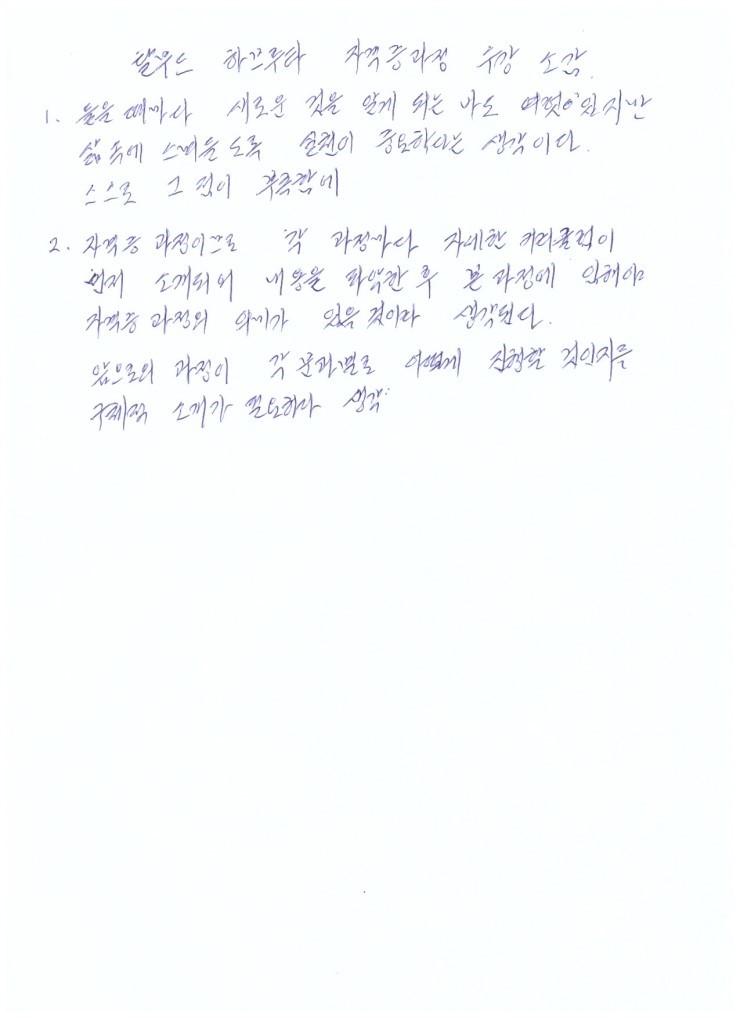 탈무드 하브루타 자격증과정 수강 소감.
1. 들을 때마다 새로운 것을 알게 되는 바도 여럿이 있지만
삶 속에 스며들도록 실천이 중요하다는 생각이다.
스스로 그 점이 부족함에
2. 자격증 과정이므로 각 과정마다 자세한 커리큘럼이
먼저 소개되어 내용을 파악한 후 본 과정에 임해야
자격증 과정의 의미가 있을 것이라 생각된다.
앞으로의 과정이 각 분과별로 어떻게 진행할 것인지를
구체적 소개가 필요하다 생각